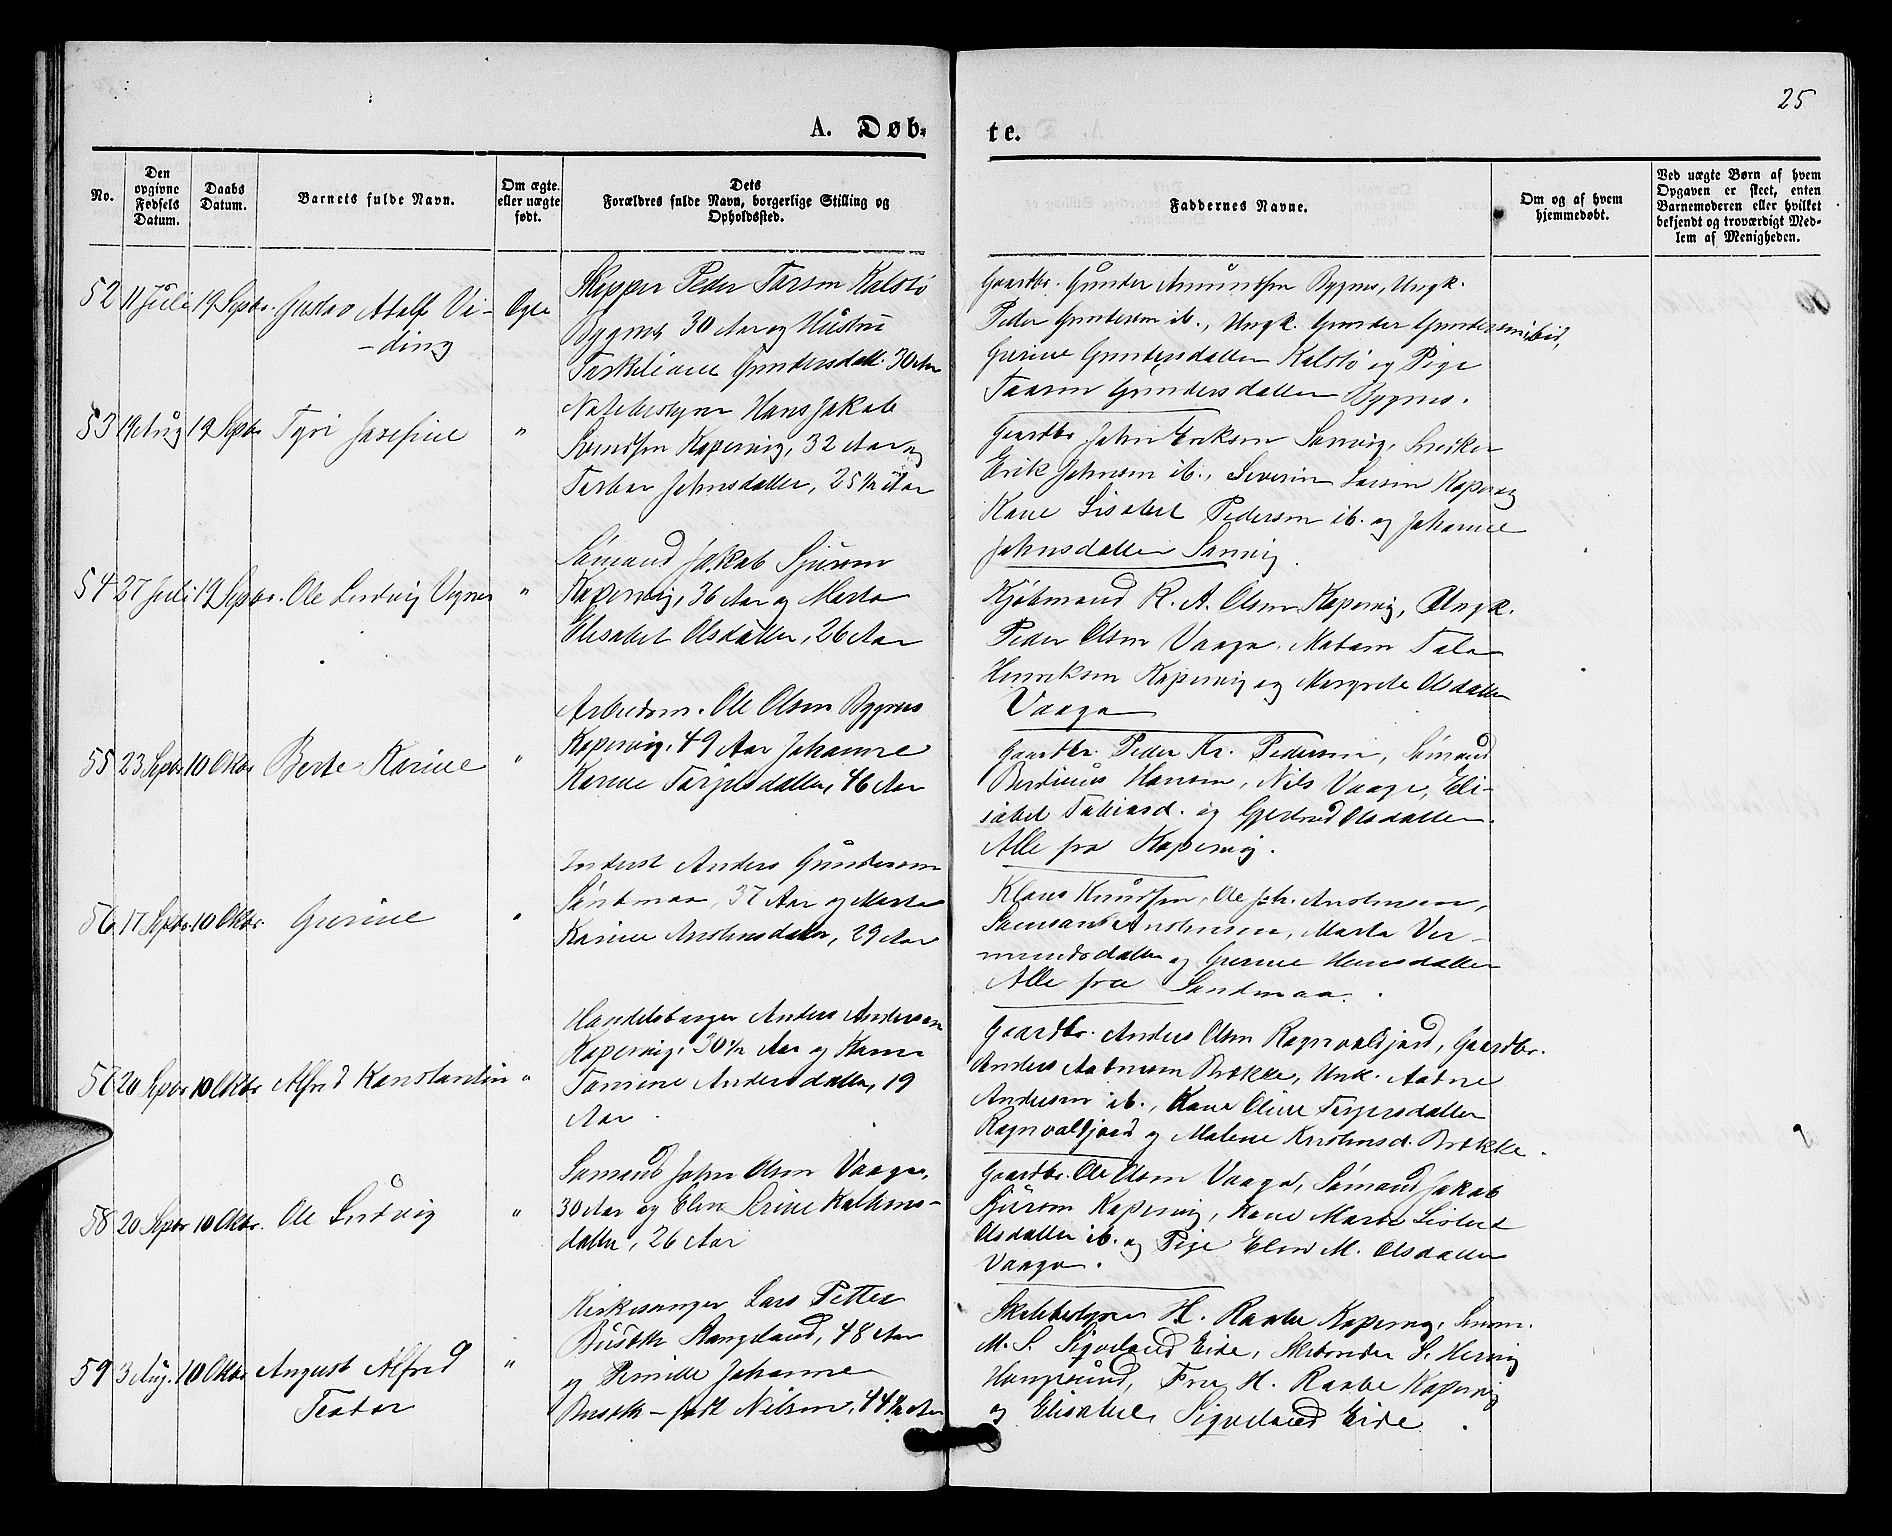 25
A. Døb-
te.
No.
Den opgivne Fødsels Datum.
Daabs Datum.
Barnets fulde Navn.
Om ægte. eller uægte født.
Dets Forældres fulde Navn, borgerlige Stilling og Opholdssted.
Faddernes Navne.
Om og af hvem hjemmedøbt.
Ved uægte Børn af hvem Opgaven er skeet, enten Barnemoderen eller hvilket bekjendt og troværdigt Medlem af Menigheden.
52 11 Juli 19 Septbr. Gustav Adolf Vi-
-ding
Ægte
Skipper Peder Larsen Kalstø
Bygnes 30 Aar og Hustru
Torkeliane Gundersdatt. 30 Aar
Gaardbr. Gunder Amundsen Bygnes, Ungk.
Peder Gundersen ib., Ungk. Gunder Gundersen ibid,
Gurine Gundersdatter Kalstø og Pige
Taaran Gundersdatter Bygnes.
53 19 Aug 19 Septbr Tyri Josefine "
Notebestyrer Hans Jakob
Svendsen Kopervig, 32 Aar og
Torbor Johnsdatter, 25 1/2 Aar
Gaardbr John Eriksen Sanvig, Snedker
Erik Johnsen ib., Severin Larsen Kopervig
Kone Lisabet Pedersen ib. og Johanne
Johnsdatter Sanvig
54 27 Juli 19 Septbr. Ole Ludvig Vogner "
Sømand Jakob Sjursen
Kopervig, 36 Aar og Marta
Elisabet Olsdatter, 26 Aar
Kjøbmand R. A. Olsen Kopervig, Ungk.
Peder Olsen Vaage, Madam Tala
Henriksen Kopervig og Margrete Olsdatter
Vaage
55 23 Septbr 10 Oktbr Berte Karine "
Arbeidsm. Ole Olsen Bygnes
Kopervig, 49 Aar Johanne
Karine Torjelsdatter, 46 Aar
Gaardbr. Peder Kr. Pedersen, Sømand
Berdinus Hansen, Nils Vaage, Eli-
sabet Tobiasd. og Gjertrud Olsdatter.
Alle fra Kopervig.
56 17 Septbr. 10 Oktbr. Gurine "
Inderst Anders Gundersen
37 Aar og Marta
Karine Anstensdatter, 29 Aar
Klaus Knudsen, Ole Joh. Anstensen,
Anstensen, Marta Ver-
mundsdatter og Gurine Hansdatter
Alle fra
57 20 Septbr 10 Oktbr Alfred Konstantin "
Handelsborger Anders Andersen
Kopervig, 30 1/2 Aar og Kone
Tomine Andersdatter, 19
Aar.
Gaardbr. Anders Olsen Ragnvaldjord, Gaardbr.
Anders Aadnesen Brække, Unk. Aadne
Andersen ib., Kone Oline Torgersdatter
Ragnvaldjord og Malene Knutensd. Brække.
58 20 Septbr 10 Oktbr. Ole Ludvig "
Sømand John Olsen Vaage,
30 Aar og Elen Serine
datter, 26 Aar
Gaardbr. Ole Olsen Vaage, Sømand Jakob
Sjursen Kopervig, Kone Marta Lisbet
Olsdatter ib. og Pige Elen M. Olsdatter
Vaage.
59 3 Aug. 10 Oktbr August Alfred
Teodor
"
Kirkesanger Lars Petter
Stangeland, 48 Aar
og Pernille Johanne
født Nilsen, 44 1/2 Aar
Skolebestyrer H. Raabe Kopervig,
M. S. Sigveland Eide, S. Hervig
Haugesund, Fru H. Raabe Kopervig
og Elisabet Sigveland Eide.